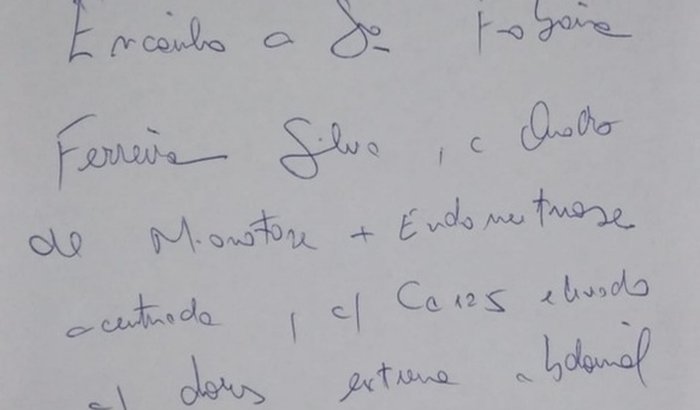 Encaminho a Sra Fabiana
Ferreira Silva, c Quadro
de Miomatose + Endometriose
acentuada, c/ Ca 125 elevado
c/ dores extrema abdominal